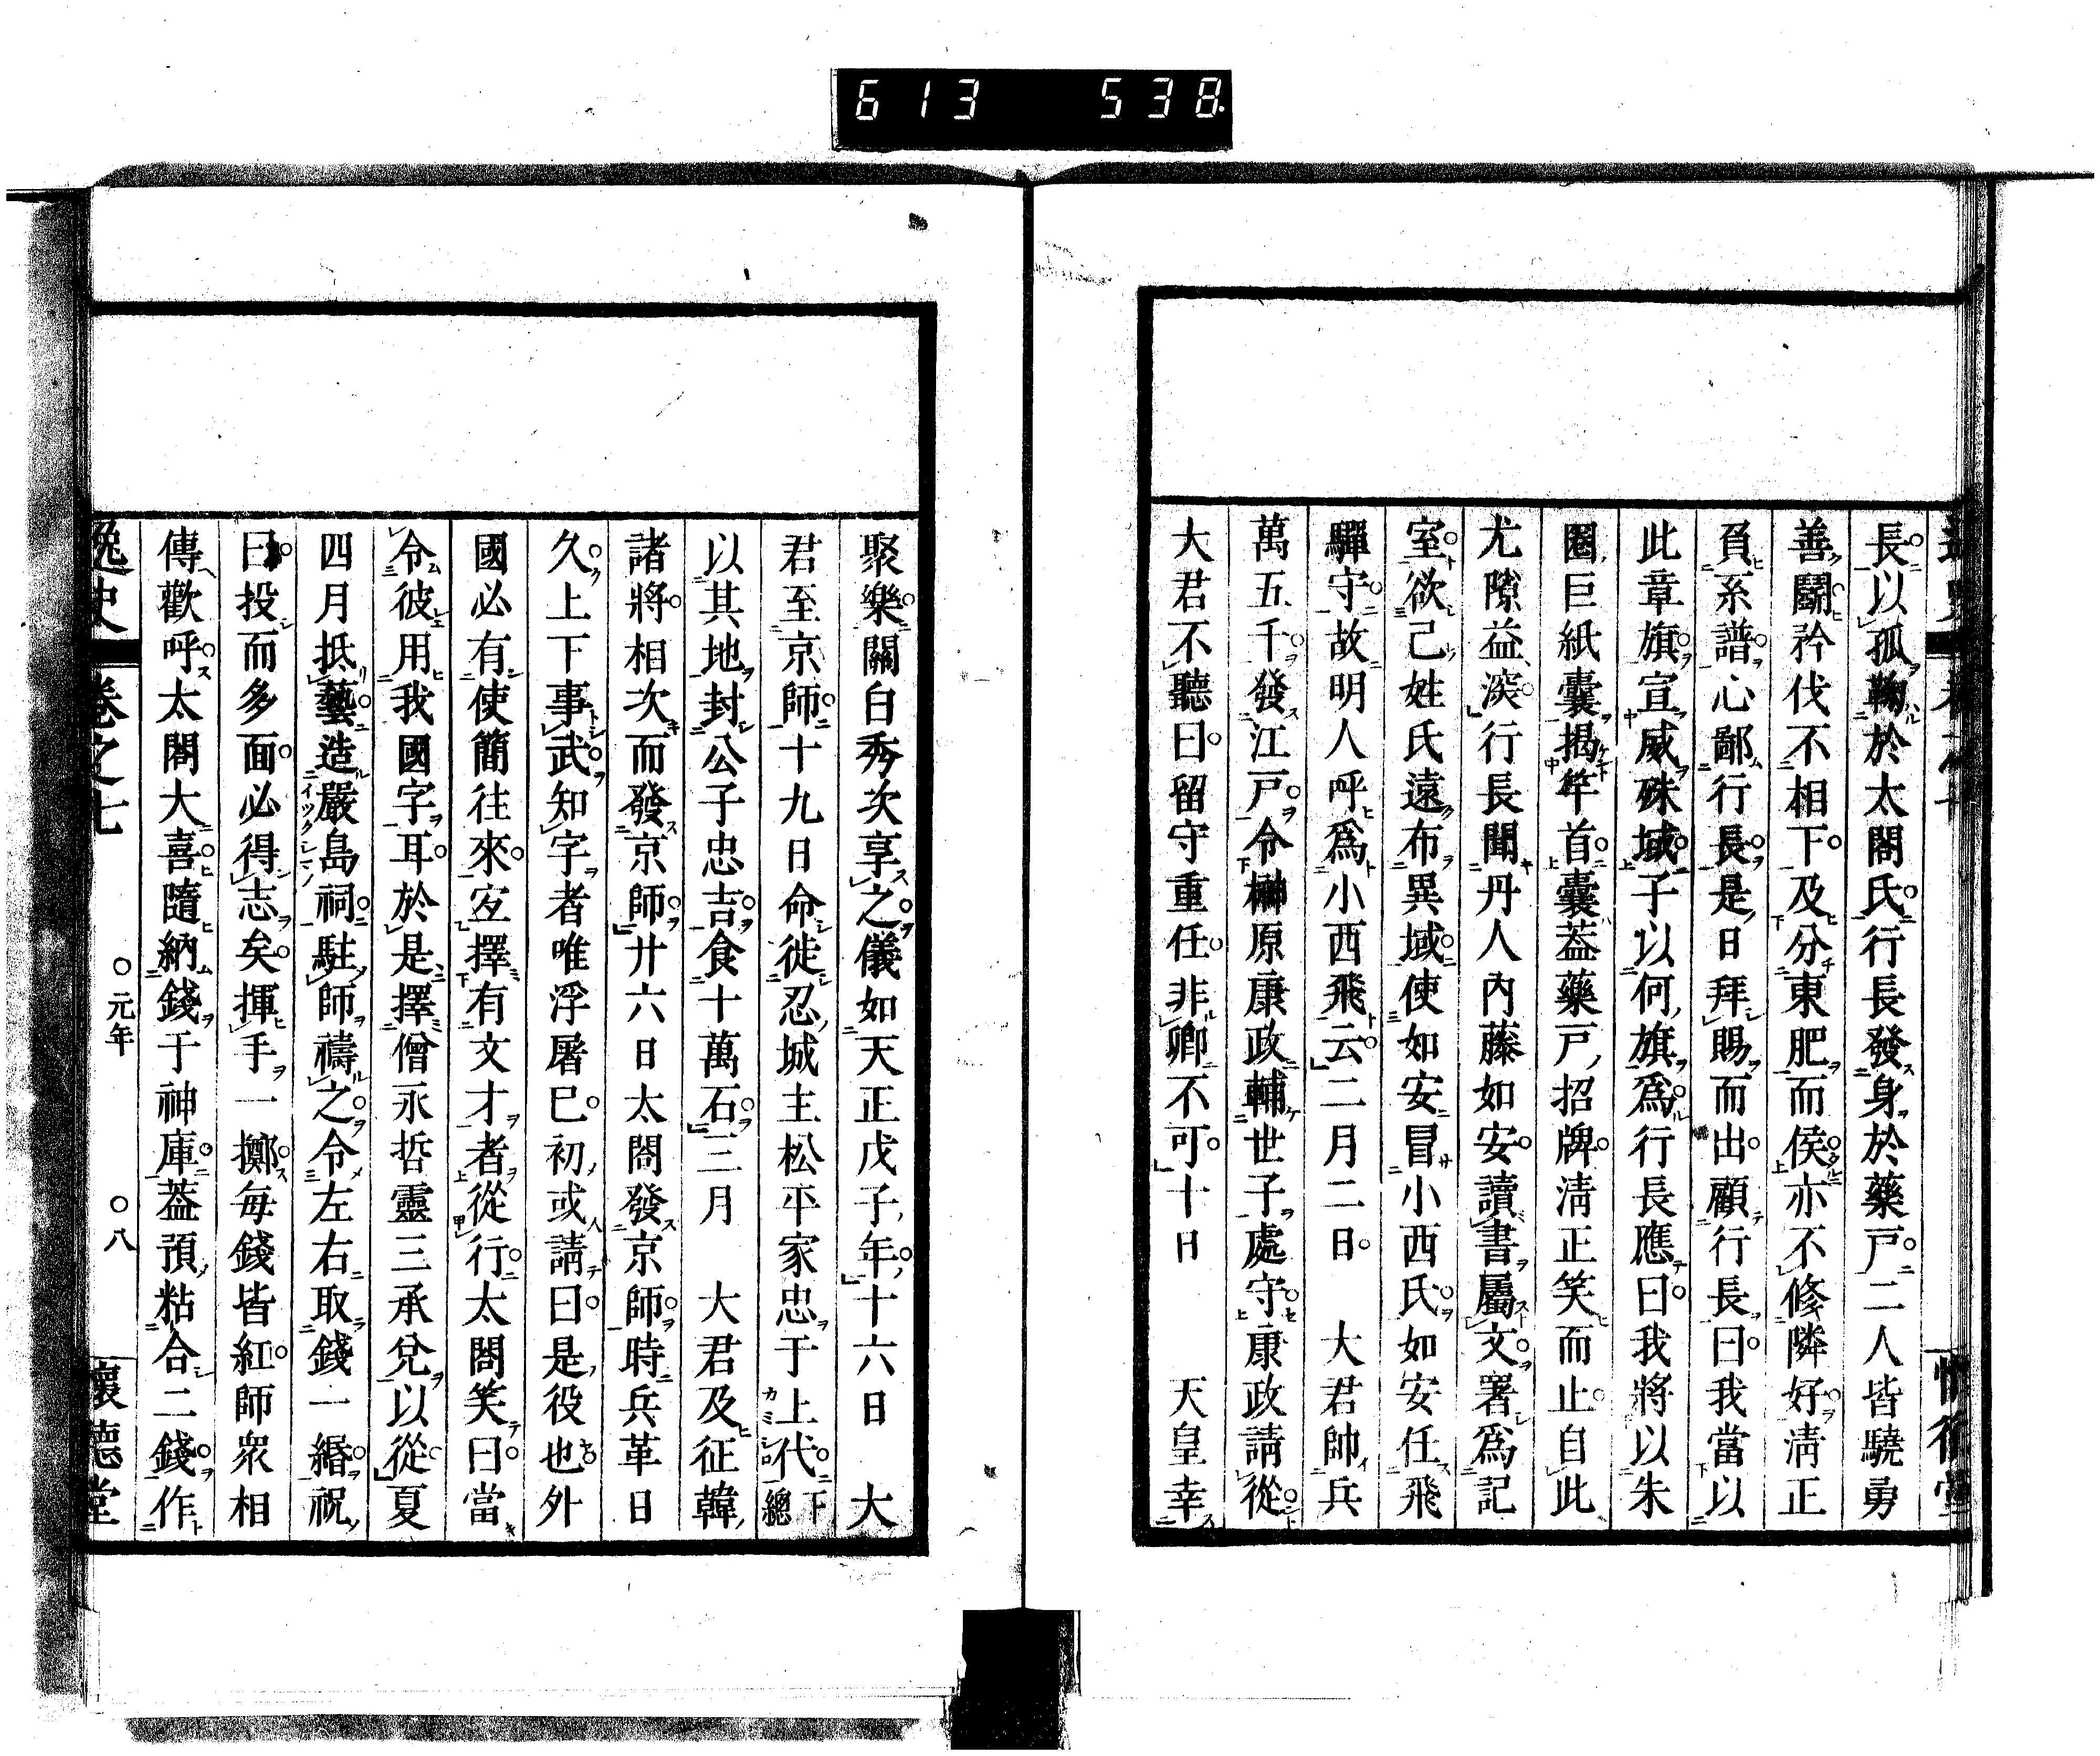 613 538.
長以孤鞠於太閤氏行長發身於藥戸二人皆驍勇
善鬭矜伐不相下及分東肥而侯亦不修隣好淸正
負系譜心鄙行長是日拜賜而出顧行長曰我當以
此章旗宣威殊域子以何旗爲行長應曰我將以朱
圈巨紙囊揭竿首囊葢藥戸招牌淸正笑而止自此
尤隙益深行長聞丹人內藤如安讀書屬文署爲記
室欲己姓氏遠布異域使如安冒小西氏如安任飛
驒守故明人呼爲小西飛云二月二日　大君帥兵
萬五千發江戸令榊原康政輔世子處守康政請從
大君不聽曰留守重任非卿不可十日　天皇幸
聚樂關白秀次享之儀如天正戊子年十六日　大
君至京師十九日命徙忍城主松平家忠于上代下總
以其地封公子忠吉食十萬石三月　大君及征韓
諸將相次而發京師廿六日太閤發京師時兵革日
久上下事武知字者唯浮屠巳初或請曰是役也外
國必有使簡往來宐擇有文才者從行太閤笑曰當
令彼用我國字耳於是擇僧永哲靈三承兌以從夏
四月抵藝造嚴島祠駐師禱之令左右取錢一緡祝
曰投而多面必得志矣揮手一擲每錢皆紅師衆相
傳歡呼太閤大喜隨納錢于神庫葢預粘合二錢作
逸史　卷之七　○元年　○八　懷德堂